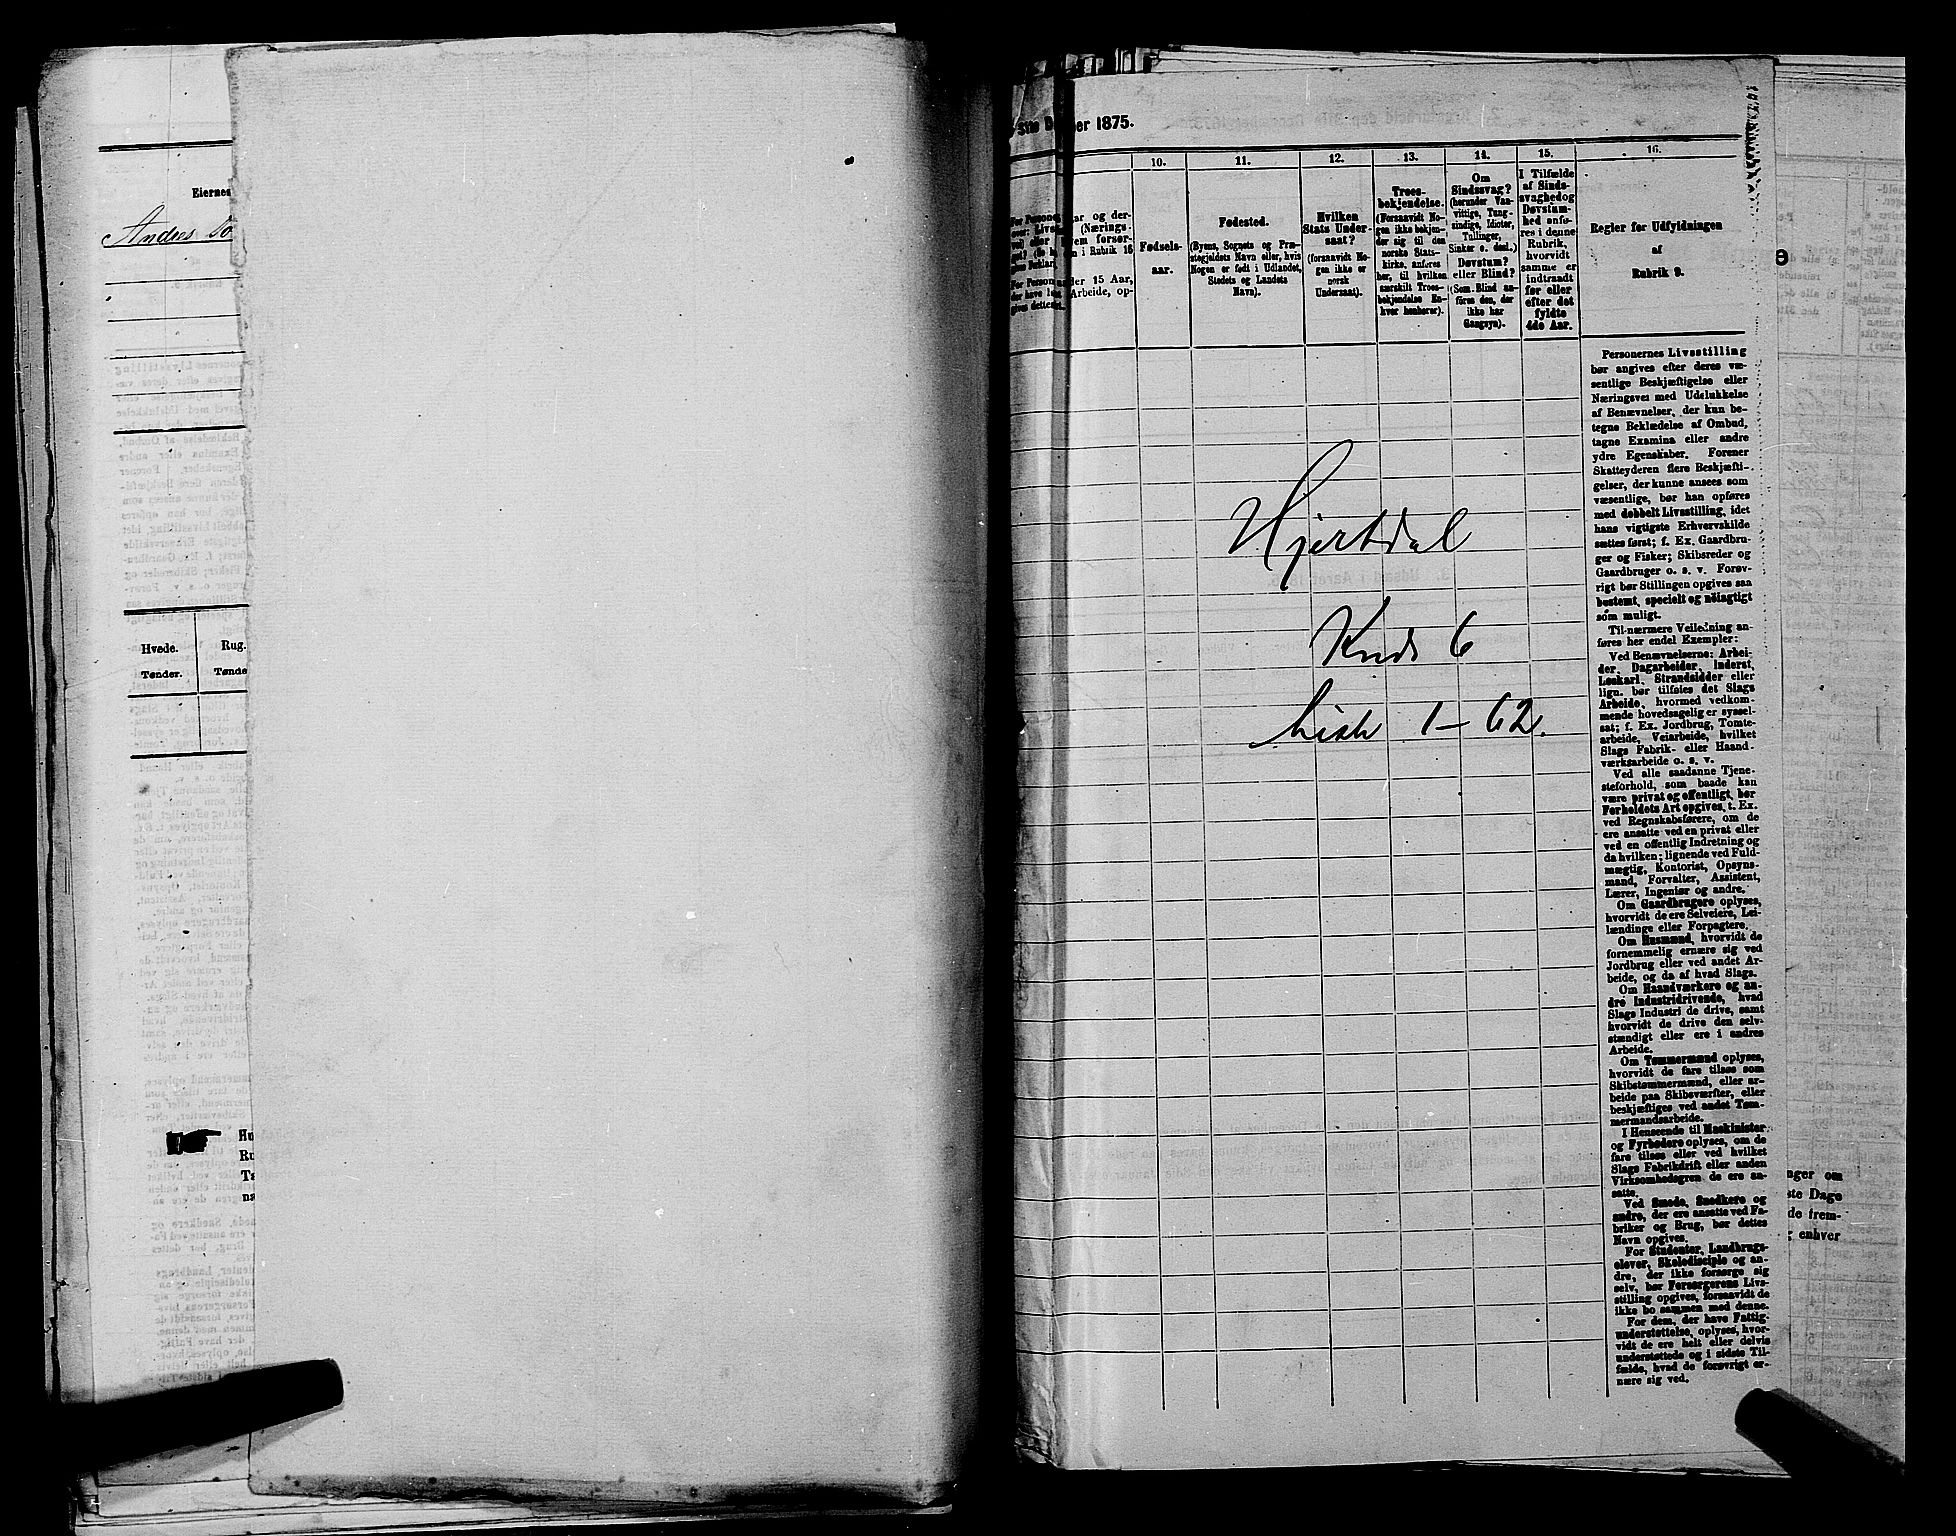 Eiernes
Andres
Hvede.
Rug.
Tønder.
Tønde
1875.
10.
11.
12.
13.
14.
15.
16.
ar og der-
(Nærings-
Arbeide, op-
der 15 Aar,
Fødsels-
aar.
Fødested.
(Byens, Sognets og Præ-
stegjeldets Navn eller, hvis
Nogen er født i Udlandet,
Stedets og Landets
Navn).
Hvilken
Stats Under-
saat?
(forsaavidt No-
gen ikke er
norsk
Undersaat).
Troes-
bekjendelse.
(Forsaavidt No-
gen ikke bekjen-
der sig til den
norske Stats-
kirke, anføres
her, til hvilken
særskilt Troes-
bekjendelse En-
hver henhører).
Om
Sindssvag?
(herunder Van-
vittige, Tung-
sindige, Idioter,
Tullinger,
Sinker o. desl.)
Døvstum?
eller Blind?
(Som Blind an-
føres den, der
ikke har
Gangsyn).
I Tilfælde
af Sinds-
svaghed og
Døvstum-
hed anfø-
res i denne
Rubrik,
hvorvidt
samme er
indtraadt
før eller
efter det
fyldte
4de Aar.
Regler for Udfyldningen
af
Rubrik 9.
Personernes Livsstilling
bør angives efter deres væ-
sentlige Beskjæftigelse eller
Næringsvei med Udelukkelse
af Benævnelser, der kun be-
tegne Beklædelse af Ombud,
tagne Examina eller andre
ydre Egenskaber. Forener
Skatteyderen flere Beskjæfti-
gelser, der kunne ansees som
væsentlige, bør han opføres
med dobbelt Livsstilling, idet
hans vigtigste Erhvervskilde
sættes først; f. Ex. Gaardbru-
ger og Fisker; Skibsreder og
Gaardbruger o. s. v. Forøv-
rigt bør Stillingen opgives saa
bestemt, specielt og nøiagtigt
som muligt.
Til nærmere Veiledning an-
føres her endel Exempler:
Ved Benævnelserne: Arbei-
der, Dagarbeider, Inderst,
Løskarl, Strandsidder eller
lign. bør tilføies det Slags
Arbeide, hvormed vedkom-
mende hovedsagelig er syssel-
sat; f. Ex. Jordbrug, Tomte-
arbeide, Veiarbeide, hvilket
Slags Fabrik- eller Haand-
værksarbeide o. s. v.
Ved alle saadanne Tjene-
steforhold, som baade kan
være privat og offentligt, bør
Forholdets Art opgives, t. Ex.
ved Regnskabsførere, om de
ere ansatte ved en privat eller
ved en offentlig Indretning og
da hvilken; lignende ved Fuld-
mægtig, Kontorist, Opsyns-
mand, Forvalter, Assistent,
Lærer, Ingeniør og andre.
Om Gaardbrugere oplyses,
hvorvidt de ere Selveiere, Lei-
lændinge eller Forpagtere.
Om Husmænd, hvorvidt de
fornemmelig ernære sig ved
Jordbrug eller ved andet Ar-
beide, og da af hvad Slags.
Om Haandværkere og an-
dre Industridrivende, hvad
Slags Industri de drive, samt
hvorvidt de drive den selv-
stændigt eller ere i andres
Arbeide.
Om Tømmermænd oplyses,
hvorvidt de fare tilsøs som
Skibstømmermænd, eller ar-
beide paa Skibsværfter, eller
beskjæftiges ved andet Tøm-
mermandsarbeide.
I Henseende til Maskinister
og Fyrbødere oplyses, om de
fare tilsøs eller ved hvilket
Slags Fabrikdrift eller anden
Virksomhedsgren de ere an-
satte.
Ved Smede, Snedkere og
andre, der ere ansatte ved Fa-
briker og Brug, bør dettes
Navn opgives.
For Studenter, Landbrugs-
elever, Skoledisciple og an-
dre, der ikke forsørge sig
selv, bør Forsørgerens Livs-
stilling opgives, forsaavidt de
ikke bo sammen med denne.
For dem, der have Fattig-
understøttelse, oplyses, hvor-
vidt de ere helt eller delvis
understøttede og i sidste Til-
fælde, hvad de forøvrigt er-
nære sig ved.
Hjertdal
Kreds 6
Liste 1-62.
nger om
ste Dage
de frem-
enhver